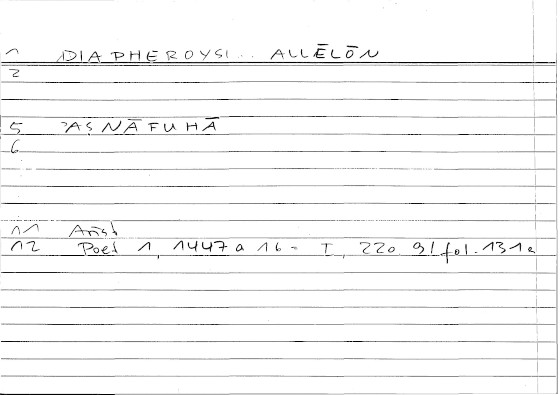 1 DIAPHEROYSI .. ALLĒLŌN
2
5 ʾAṢNĀFUHĀ
6
11 Arist
12 Poet 1, 1447a 16 = T, 220 9/fol. 131a